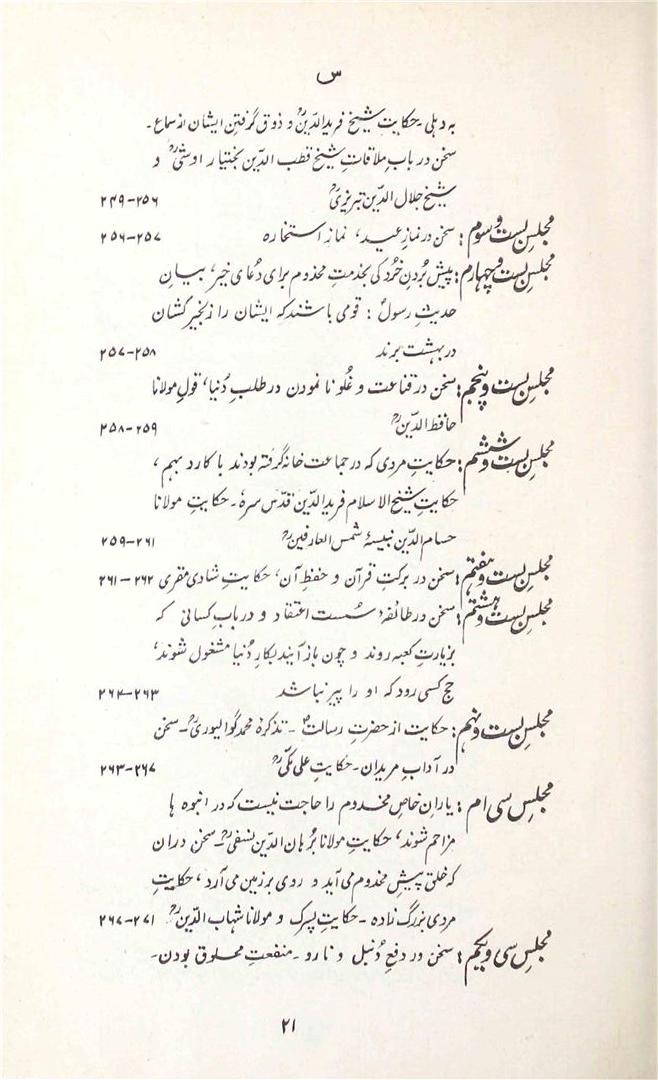 س
به دہلی۔ حکایتِ شیخ فرید الدّینؒ و ذوق گرفتنِ ایشان از سماع۔
سخن در بابِ ملاقاتِ شیخ قطب الدّین بختیار اوشیؒ و
شیخ جلال الدّین تبریزیؒ ۲۴۹-۲۵۶
مجلسِ بست و سوم: سخن در نمازِ عید، نمازِ استخاره ۲۵۶-۲۵۷
مجلسِ بست و چہارم: پیش بُردنِ خُردکی بخدمتِ مخدوم برای دُعای خیر، بیانِ
حدیثِ رسولؐ: قومی باشند که ایشان را زنجیر کشان
در بہشت برند ۲۵۷-۲۵۸
مجلسِ بست و پنجم: سخن در قناعت و غُلو نا نمودن در طلبِ دُنیا، قولِ مولانا
حافظ الدّینؒ ۲۵۸-۲۵۹
مجلسِ بست و ششم: حکایتِ مردی که در جماعت خانه گرفته بودند با کارد بہم،
حکایتِ شیخ الاسلام فرید الدّین قدّس سرهٗ۔ حکایتِ مولانا
حسام الدّین نبیسهٔ شمس العارفینؒ ۲۵۹-۲۶۱
مجلسِ بست و ہفتم: سخن در برکتِ قرآن و حفظِ آن، حکایتِ شادی مقری ۲۶۱-۲۶۲
مجلسِ بست و ہشتم: سخن در طائفهٔ سُست اعتقاد و در بابِ کسانی که
بزیارتِ کعبه روند و چون باز آیند بکارِ دُنیا مشغول شوند،
حج کسی رود که او را پیر نباشد ۲۶۳-۲۶۴
مجلسِ بست و نہم: حکایت از حضرتِ رسالتؐ۔ تذکرهٔ محمد گوالیوریؒ۔ سخن
در آدابِ مریدان۔ حکایتِ علی مکّیؒ ۲۶۳-۲۶۷
مجلسِ سی ام: یارانِ خاصِ مخدوم را حاجت نیست که در انبوه ہا
مزاحم شوند، حکایتِ مولانا بُرہان الدّین نسفیؒ۔ سخن در ان
که خلق پیشِ مخدوم می آید و روی بر زمین می آرد، حکایتِ
مردی بزرگ زاده۔ حکایتِ پسرک و مولانا شہاب الدّینؒ ۲۶۷-۲۷۱
مجلسِ سی و یکم: سخن در دفعِ دُنبل و نارو۔ منفعتِ محلوق بودن۔
۲۱